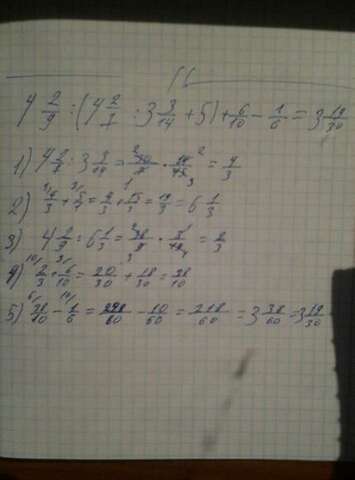 4 2/9 : (4 2/7 : 3 3/14 + 5) + 6/10 - 1/6 = 3 19/30
1) 4 2/7 : 3 3/14 = 30/7 · 14/45 = 4/3
2) 4/3 + 5/1 = 4/3 + 15/3 = 19/3 = 6 1/3
3) 4 2/9 : 6 1/3 = 38/9 · 3/19 = 2/3
4) 2/3 + 6/10 = 20/30 + 18/30 = 38/10
5) 38/10 - 1/6 = 228/60 - 10/60 = 218/60 = 3 38/60 = 3 19/30